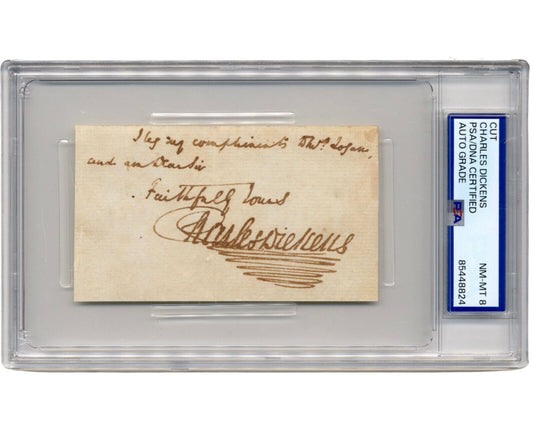 I beg my compliments to Mrs. Logan,
and am Dear Sir
Faithfully Yours
Charles Dickens
CUT
CHARLES DICKENS
PSA/DNA CERTIFIED
AUTO GRADE
PSA
NM-MT 8
85448824